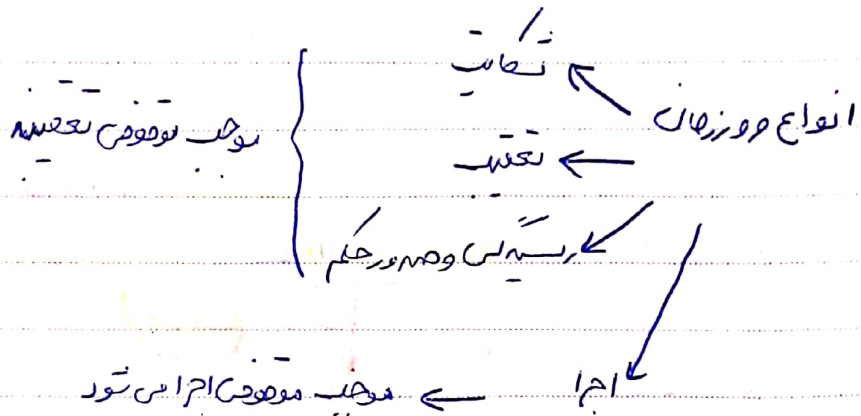 انواع مرور زمان
شکایت
تعقیب
رسیدگی و صدور حکم
موجب موقوفی تعقیب
اجرا ← موجب موقوفی اجرا می شود